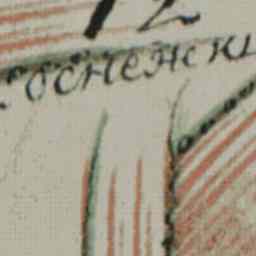 12
Сосненски